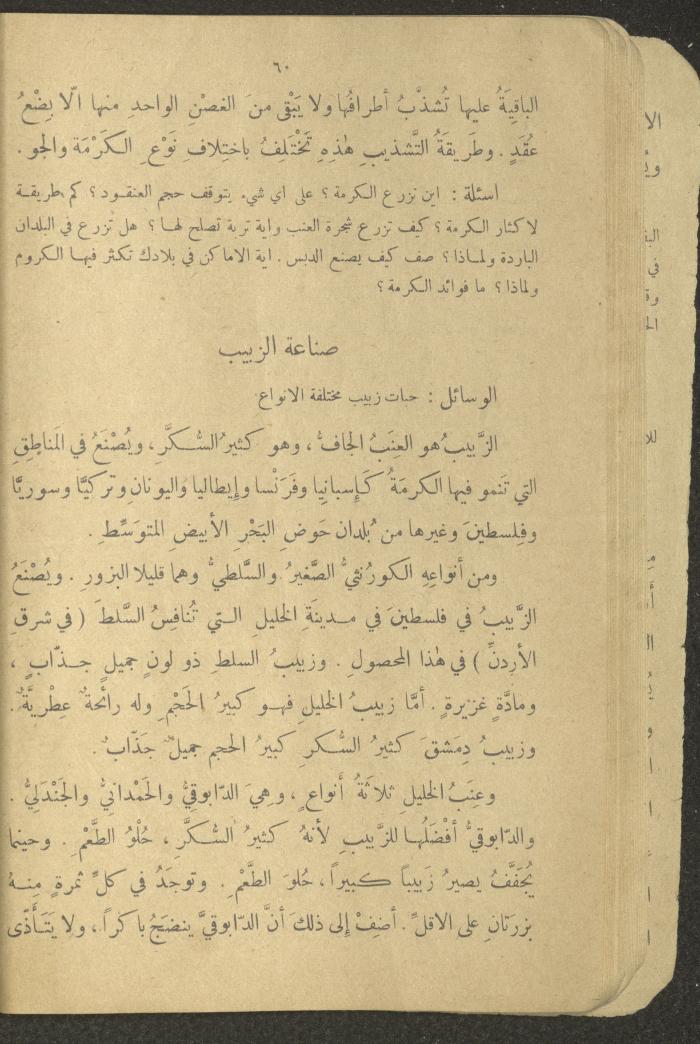 ٦٠
الباقِيَةُ عليها تُشذَّبُ أطرافُها ولا يَبْقى منَ الغصْنِ الواحدِ منها الّا بِضْعُ
عُقَدٍ . وطَريقَةُ التَّشذيبِ هٰذِهِ تَخْتَلفُ باختِلافِ نَوْعِ الكَرْمَة والجو .
اسئلة : اين نزرع الكرمة ؟ على اي شيء يتوقف حجم العنقود ؟ كم طريقة
لاكثار الكرمة ؟ كيف تزرع شجرة العنب واية تربة تصلح لها ؟ هل تزرع في البلدان
الباردة ولماذا ؟ صف كيف يصنع الدبس . اية الاماكن في بلادك تكثر فيها الكروم
ولماذا ؟ ما فوائد الكرمة ؟
صناعة الزبيب
الوسائل : حبات زبيب مختلفة الانواع
الزَّبيبُ هو العِنَبُ الجافُّ ، وهو كثيرُ السُّكَّرِ ، ويُصْنَعُ في المَناطِقِ
التي تَنمو فيها الكرمَةُ كَإسبانِيا وفَرَنْسا وإيطاليا واليونانِ وتركِيَّا وسوريَّا
وفِلسطينَ وغيرها من بُلدان حَوضِ البَحْرِ الأبيضِ المتوَسِّطِ .
ومن أنواعِهِ الكورُنثيُّ الصَّغيرُ والسَّلطيُّ وهما قليلا البزورِ . ويُصْنَعُ
الزَّبيبُ في فلسطينَ في مدينَةِ الخليلِ التي تُنافِسُ السَّلطَ ( في شرقِ
الأردنِّ ) في هٰذا المحصولِ . وزبيبُ السلطِ ذو لونٍ جميلٍ جذّابٍ ،
ومادَّةٍ غزيرةٍ . أمَّا زبيبُ الخليلِ فهو كبيرُ الحَجْمِ وله رائحةٌ عِطْرِيَّةٌ .
وزبيبُ دِمَشقَ كثيرُ السُّكرِ كبيرُ الحجم جميلٌ جَذّابٌ .
وعِنَبُ الخليلِ ثلاثَةُ أَنواعٍ ، وهيَ الدّابوقِيُّ والحَمْدانيُّ والجَنْدَلِيُّ .
والدّابوقيُّ أفْضَلُها للزَّبيبِ لأنهُ كثيرُ السُّكَّرِ ، حُلْوُ الطَّعْمِ . وحينما
يُجَفَّفُ يصيرُ زَبيباً كبيراً ، حُلوَ الطَّعْمِ . وتوجَدُ في كلِّ ثمرةٍ مِنهُ
بزرتانِ على الاقلِّ . أضِفْ إلى ذلكَ أنَّ الدّابوقيَّ ينضَجُ باكراً ، ولا يَتَأذّى